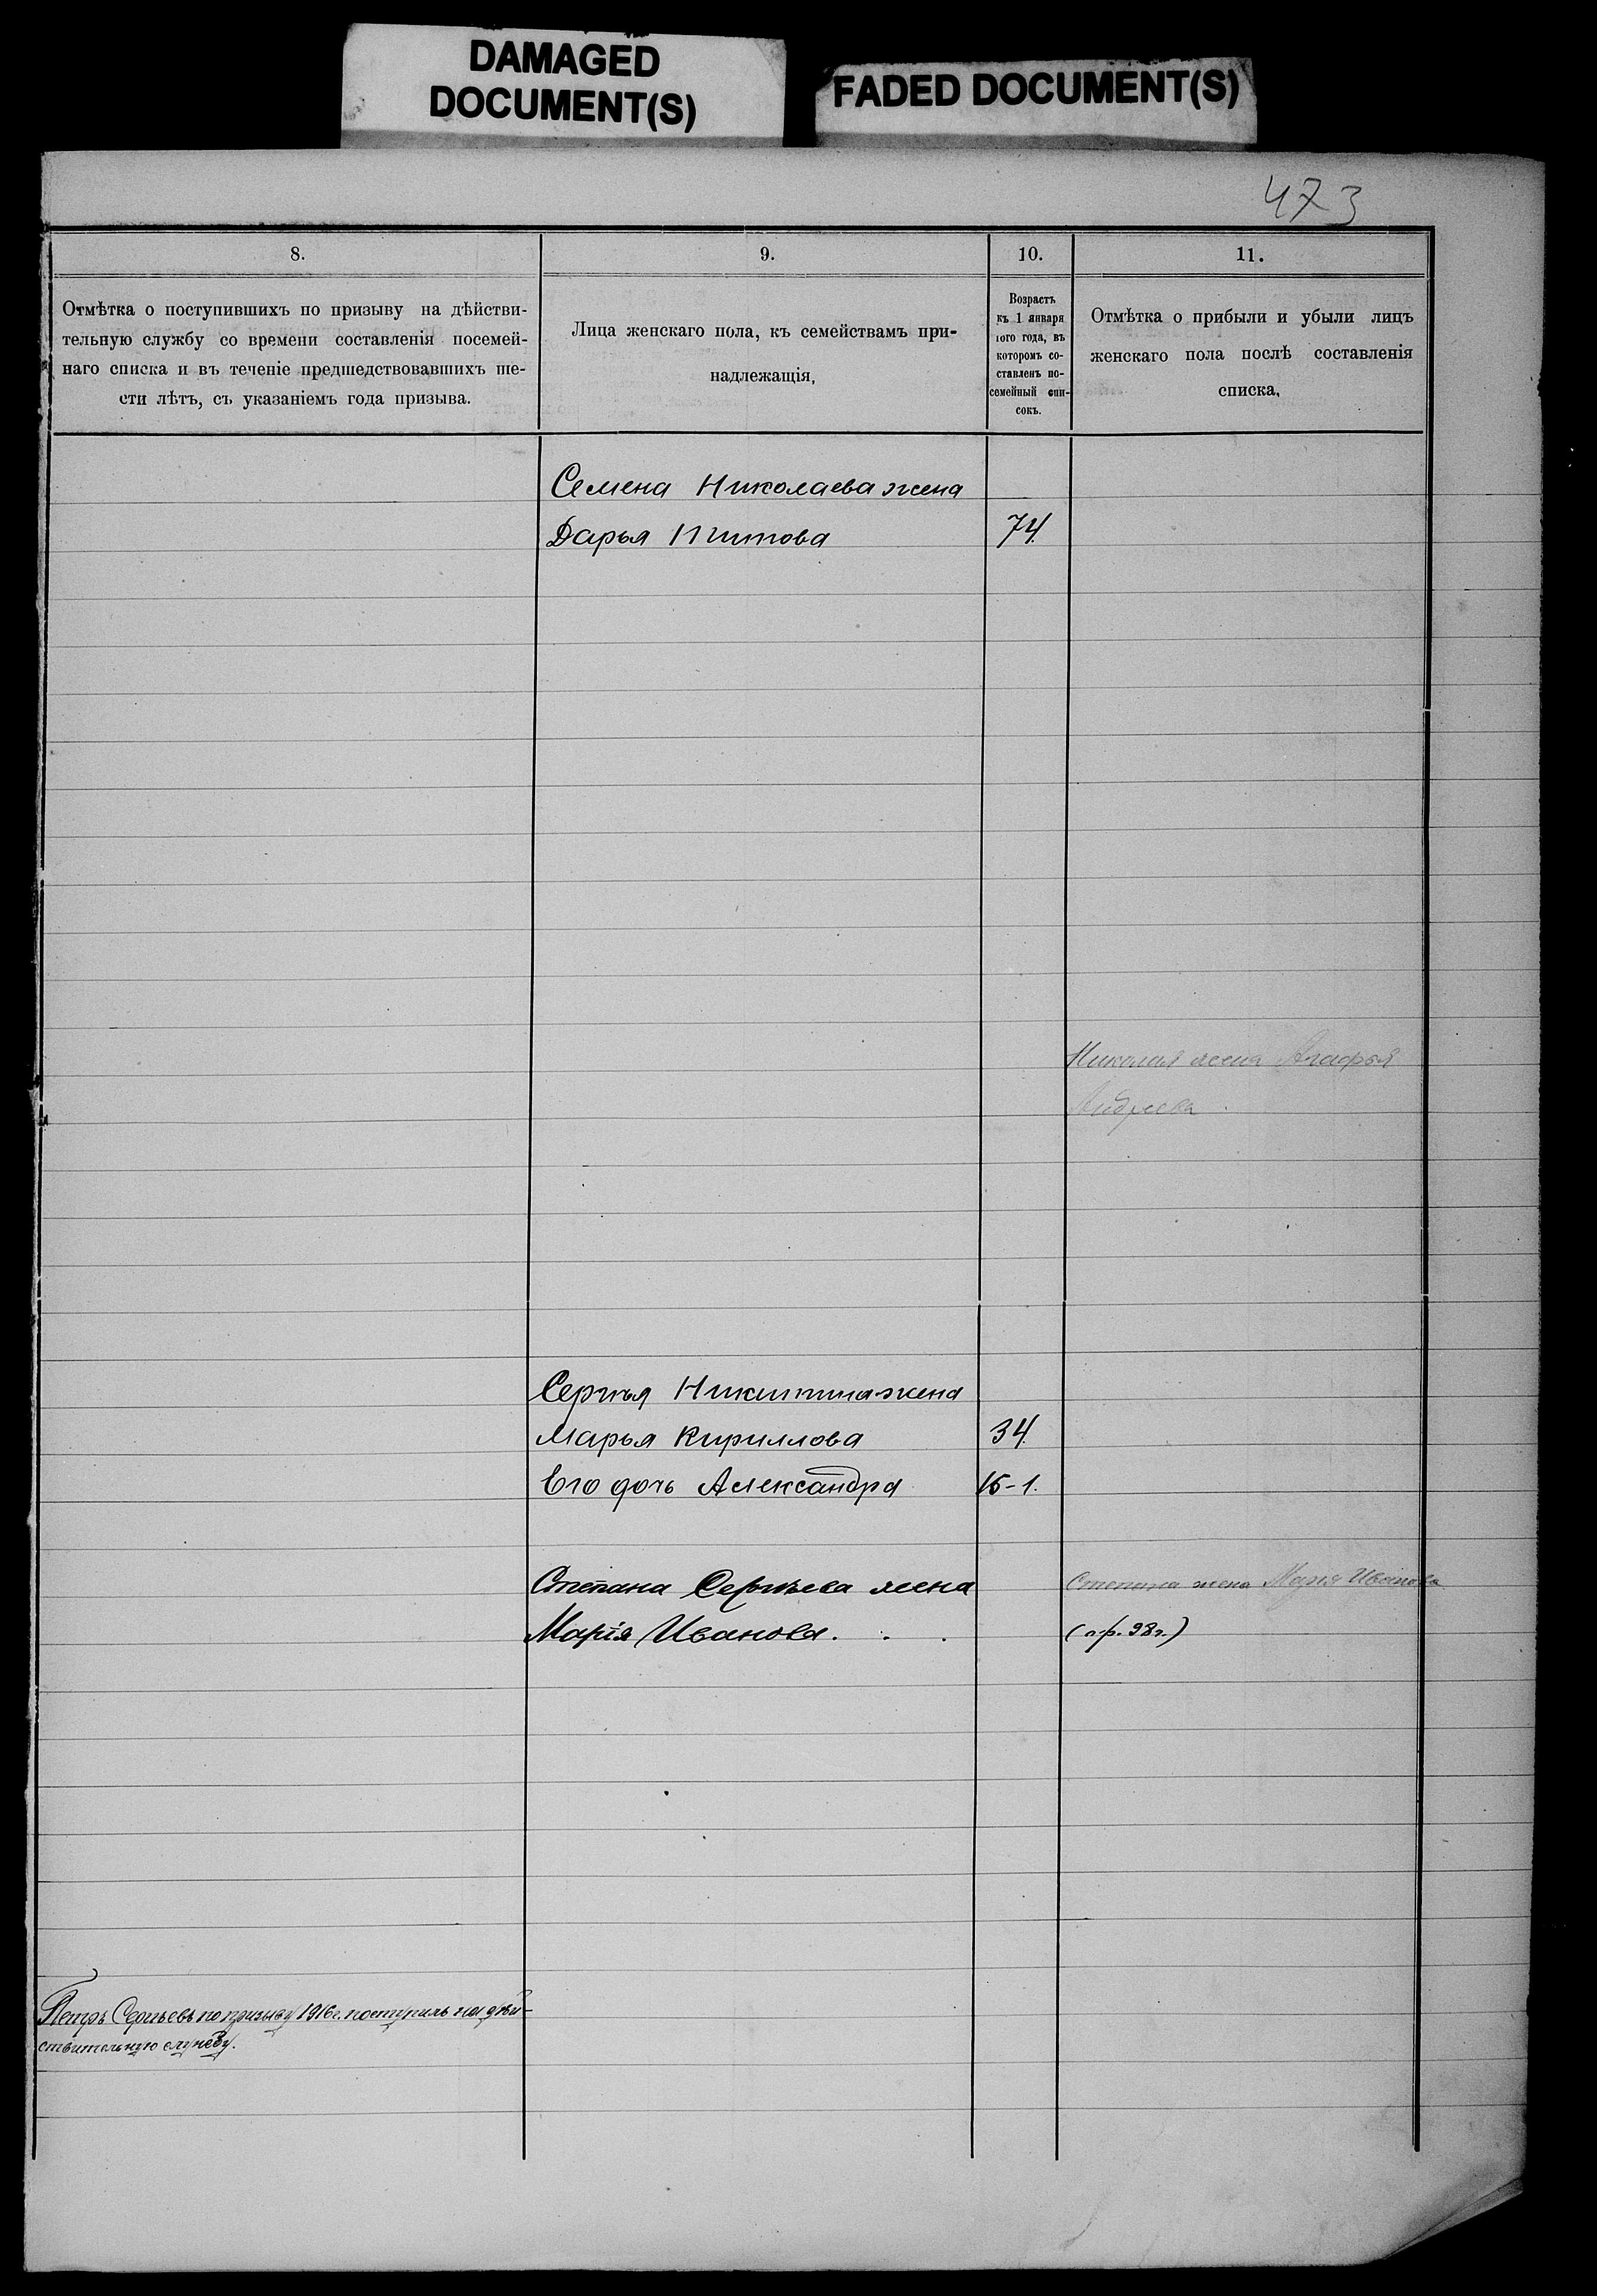 DAMAGED
DOCUMENT(S)
FADED DOCUMENT(S)
473
8.
9.
10.
11.
Отмѣтка о поступившихъ по призыву на дѣйстви-
тельную службу со времени составленія посемей-
наго списка и въ теченіе предшедствовавшихъ ше-
сти лѣтъ, съ указаніемъ года призыва.
Лица женскаго пола, къ семействамъ при-
надлежащія,
Возрастъ
къ 1 января
того года, въ
которомъ со-
ставленъ по-
семейный спи-
сокъ.
Отмѣтка о прибыли и убыли лицъ
женскаго пола послѣ составленія
списка,
Семена Николаева жена
Дарья Титова 74.
Николая жена Агафья
Андреева.
Сергѣя Никитина жена
Марья Кириллова 34.
Его дочь Александра 15-1.
Степана Сергѣева жена
Степана жена Марія Иванова
Марія Иванова. . .
(пр. 98 г.)
Петръ Сергѣевъ по призыву 1916 г. поступилъ на дѣй-
ствительную службу.